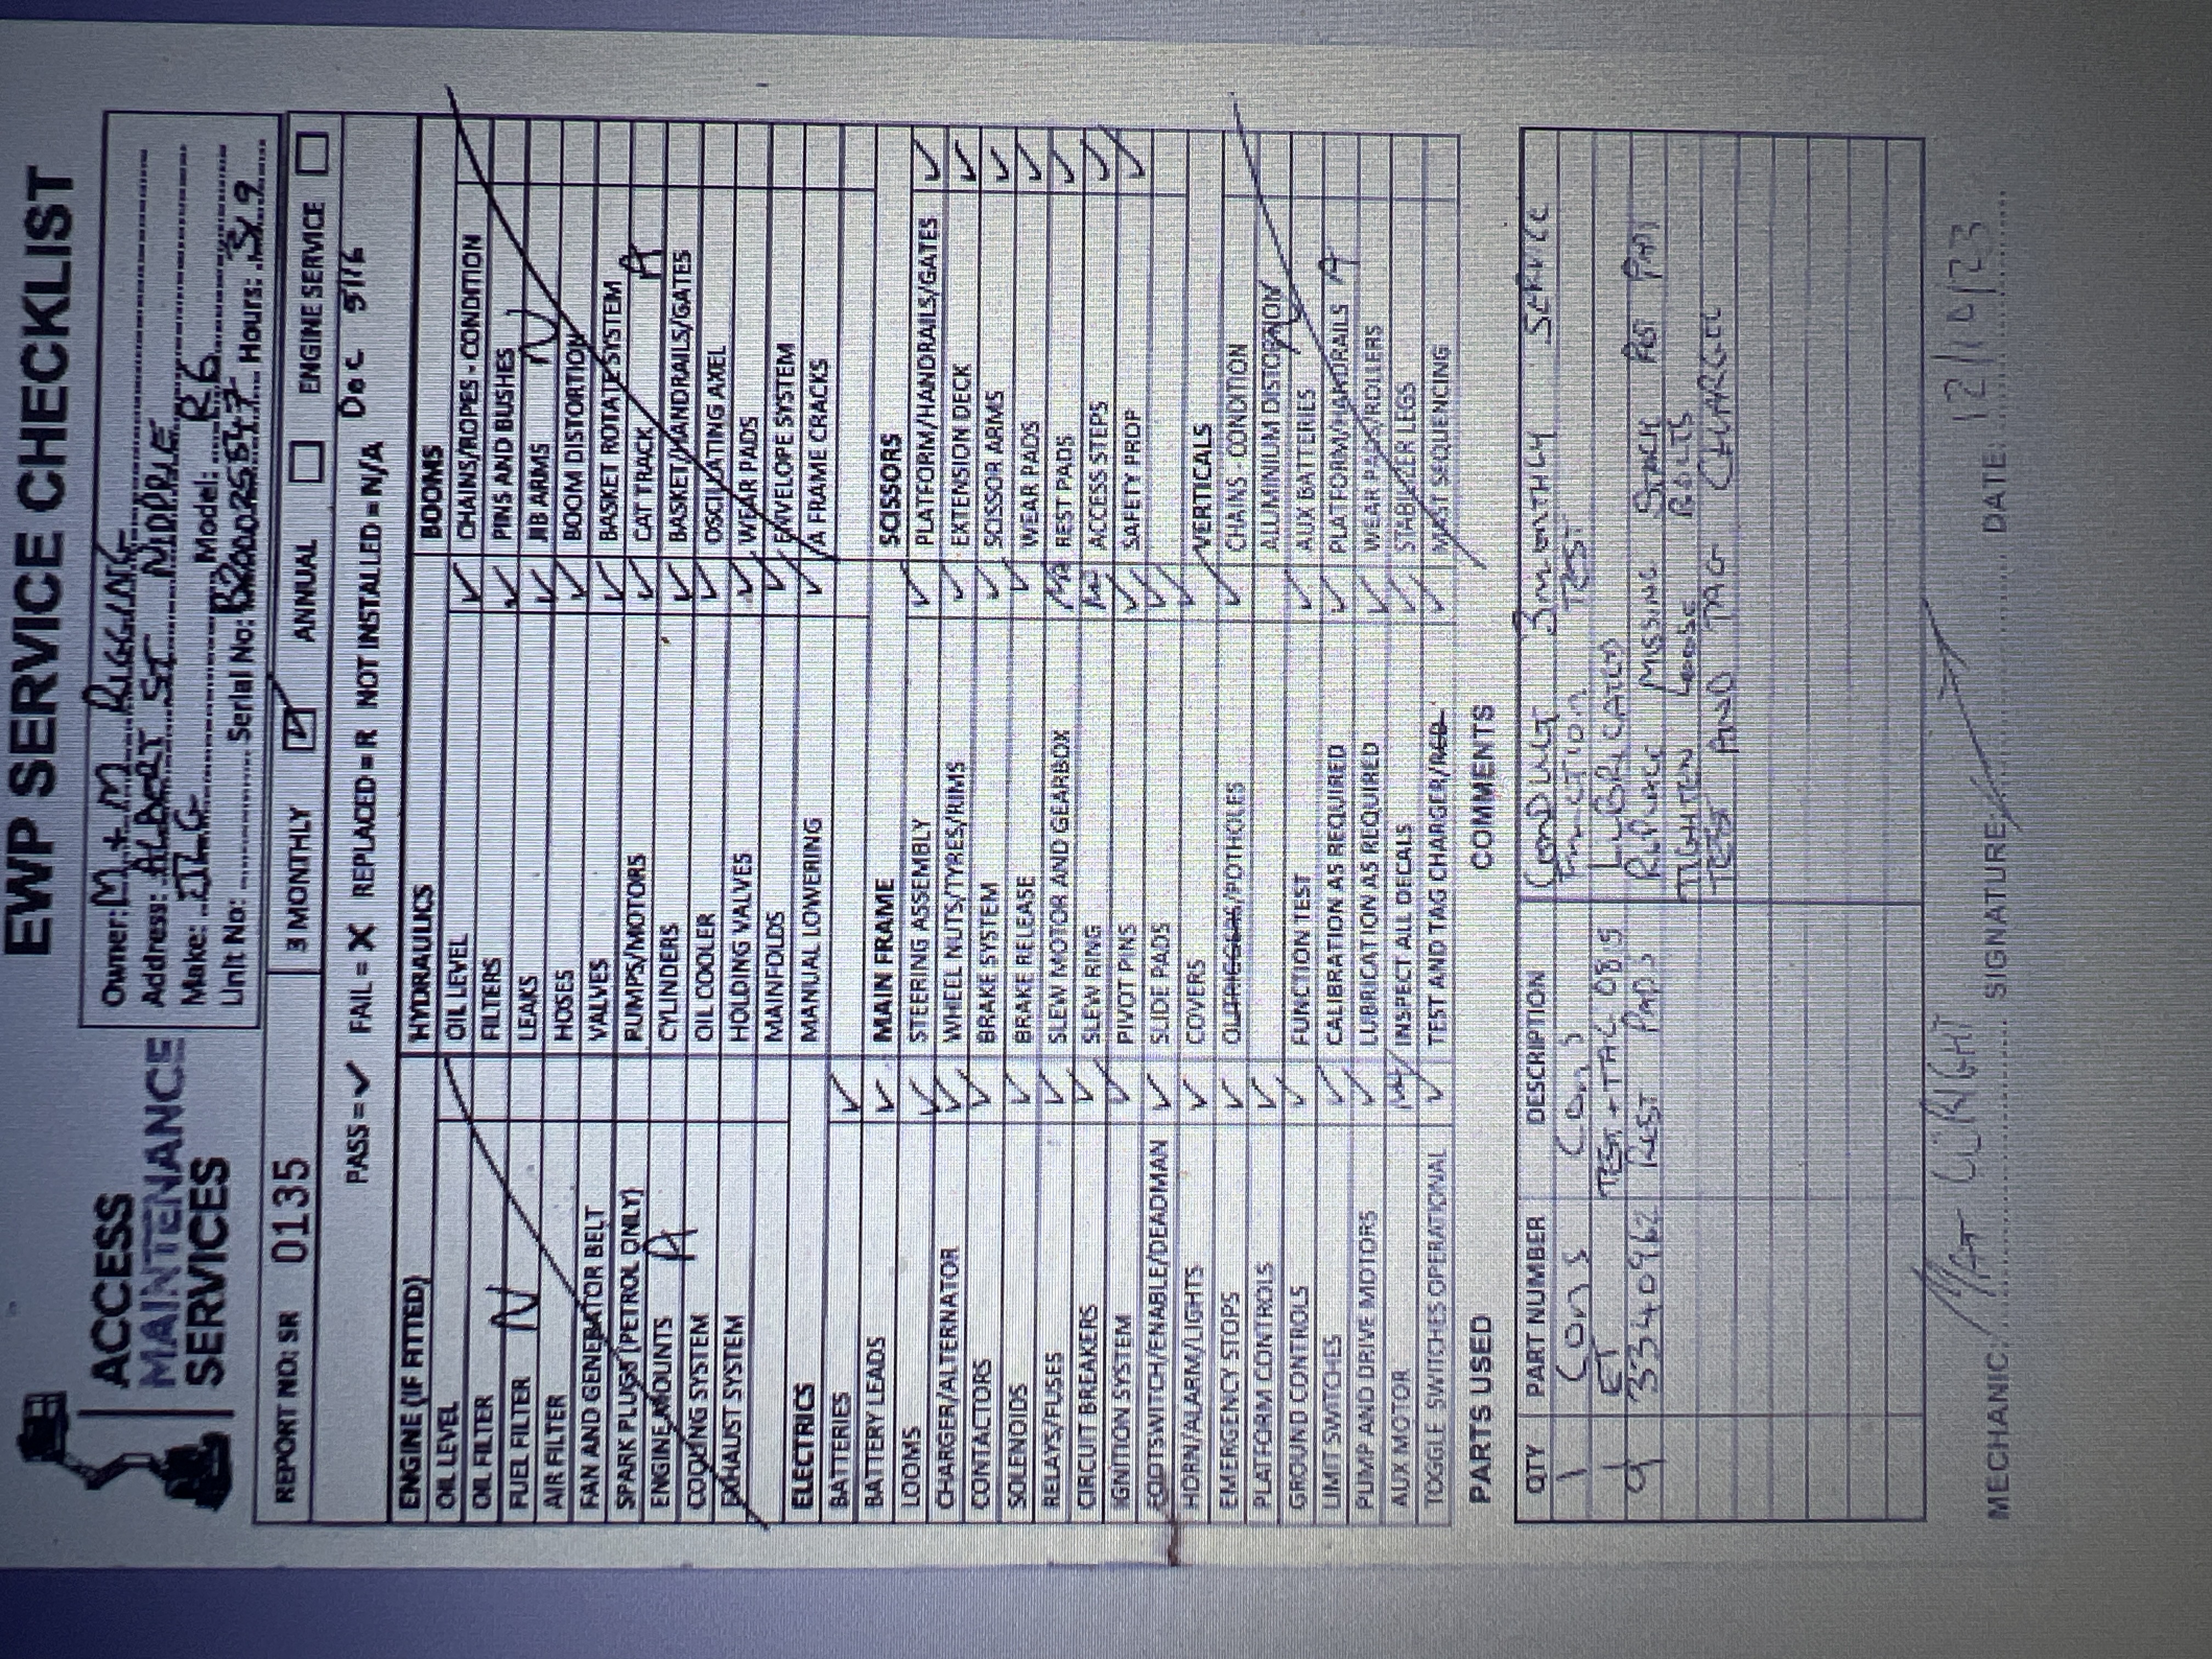 EWP SERVICE CHECKLIST
ACCESS
MAINTENANCE
SERVICES
Owner: M+M RIGGING
Address: ALBORT ST
Make: JLG Model: R6
Unit No: Serial No: Hours: 319
REPORT NO: SR 0135
3 MONTHLY ✓ ANNUAL ENGINE SERVICE
PASS = ✓ FAIL = X REPLACED = R NOT INSTALLED = N/A Doc 5116
ENGINE (IF FITTED)
OIL LEVEL
OIL FILTER
FUEL FILTER N
AIR FILTER
FAN AND GENERATOR BELT
SPARK PLUGS (PETROL ONLY)
ENGINE MOUNTS A
COOLING SYSTEM
EXHAUST SYSTEM
ELECTRICS
BATTERIES ✓
BATTERY LEADS ✓
LOOMS ✓
CHARGER/ALTERNATOR ✓
CONTACTORS ✓
SOLENOIDS ✓
RELAYS/FUSES ✓
CIRCUIT BREAKERS ✓
IGNITION SYSTEM ✓
FOOTSWITCH/ENABLE/DEADMAN ✓
HORN/ALARM/LIGHTS ✓
EMERGENCY STOPS ✓
PLATFORM CONTROLS ✓
GROUND CONTROLS ✓
LIMIT SWITCHES ✓
PUMP AND DRIVE MOTORS ✓
AUX MOTOR NA
TOGGLE SWITCHES OPERATIONAL ✓
HYDRAULICS
OIL LEVEL ✓
FILTERS ✓
LEAKS ✓
HOSES ✓
VALVES ✓
PUMPS/MOTORS ✓
CYLINDERS ✓
OIL COOLER ✓
HOLDING VALVES ✓
MAINFOLDS ✓
MANUAL LOWERING ✓
MAIN FRAME
STEERING ASSEMBLY ✓
WHEEL NUTS/TYRES/RIMS ✓
BRAKE SYSTEM ✓
BRAKE RELEASE ✓
SLEW MOTOR AND GEARBOX NA
SLEW RING NA
PIVOT PINS ✓
SLIDE PADS ✓
COVERS ✓
OUTRIGGERS/POTHOLES ✓
FUNCTION TEST ✓
CALIBRATION AS REQUIRED ✓
LUBRICATION AS REQUIRED ✓
INSPECT ALL DECALS ✓
TEST AND TAG CHARGER/RCD ✓
BOOMS
CHAINS/ROPES - CONDITION
PINS AND BUSHES
JIB ARMS N
BOOM DISTORTION
BASKET ROTATE SYSTEM
CAT TRACK A
BASKET/HANDRAILS/GATES
OSCILLATING AXEL
WEAR PADS
ENVELOPE SYSTEM
A FRAME CRACKS
SCISSORS
PLATFORM/HANDRAILS/GATES ✓
EXTENSION DECK ✓
SCISSOR ARMS ✓
WEAR PADS ✓
REST PADS ✓
ACCESS STEPS ✓
SAFETY PROP ✓
VERTICALS
CHAINS - CONDITION
ALUMINIUM DISTORTION N
AUX BATTERIES
PLATFORM/HANDRAILS A
WEAR PADS/ROLLERS
STABILIZER LEGS
MAST SEQUENCING
PARTS USED
QTY PART NUMBER DESCRIPTION
1 Cons Cons
ET TEST + TAG 0B9
4 3340962 REST PADS
COMMENTS
CONDUCT 3 MONTHLY SERVICE
FUNCTION TEST
LUBRICATED
REPLACE MISSING STACK REST PADS
TIGHTEN LOOSE BOLTS
TEST AND TAG CHARGER
MECHANIC: MAT WRIGHT SIGNATURE: DATE: 12/10/23